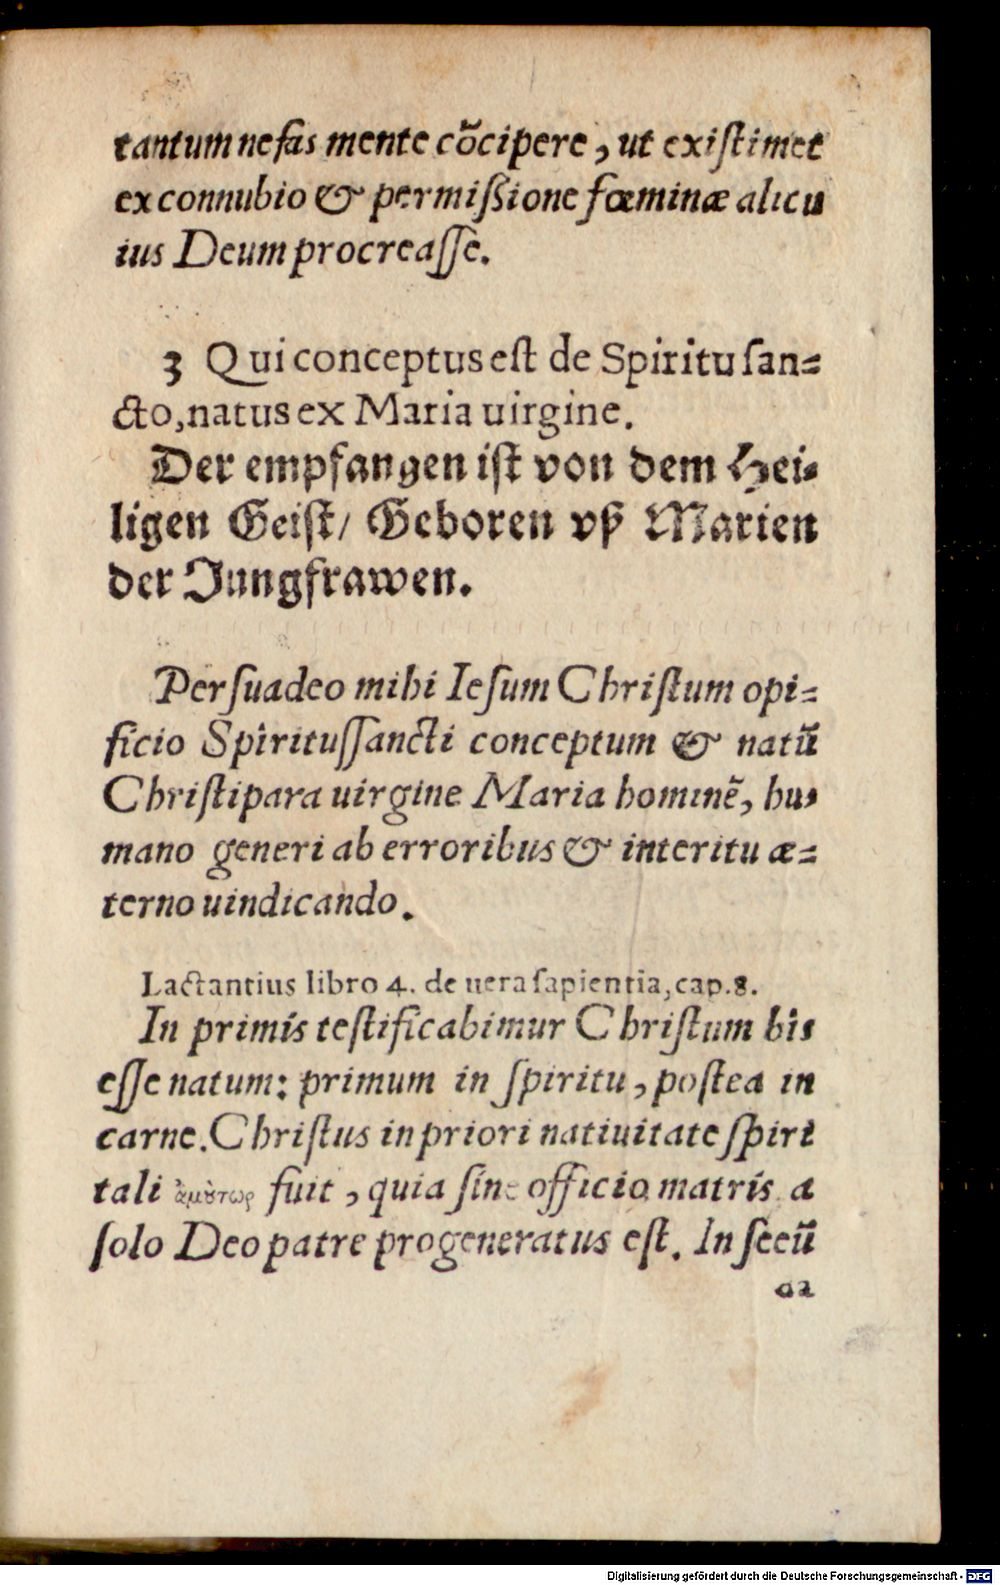 tantum nefas mente cõcipere, ut existimet
ex connubio & permißione fœminæ alicu
ius Deum procreasse.
3 Qui conceptus est de Spiritu san=
cto, natus ex Maria uirgine.
Der empfangen ist von dem Hei-
ligen Geist/ Geboren vß Marien
der Jungfrawen.
Persuadeo mihi Iesum Christum opi=
ficio Spiritussancti conceptum & natũ
Christipara uirgine Maria hominẽ, hu-
mano generi ab erroribus & interitu æ=
terno uindicando.
Lactantius libro 4. de uera sapientia, cap.8.
In primis testificabimur Christum bis
esse natum: primum in spiritu, postea in
carne. Christus in priori natiuitate spiri
tali fuit, quia sine officio matris a
solo Deo patre progeneratus est. In secũ
Digitalisierung gefördert durch die Deutsche Forschungsgemeinschaft - DFG